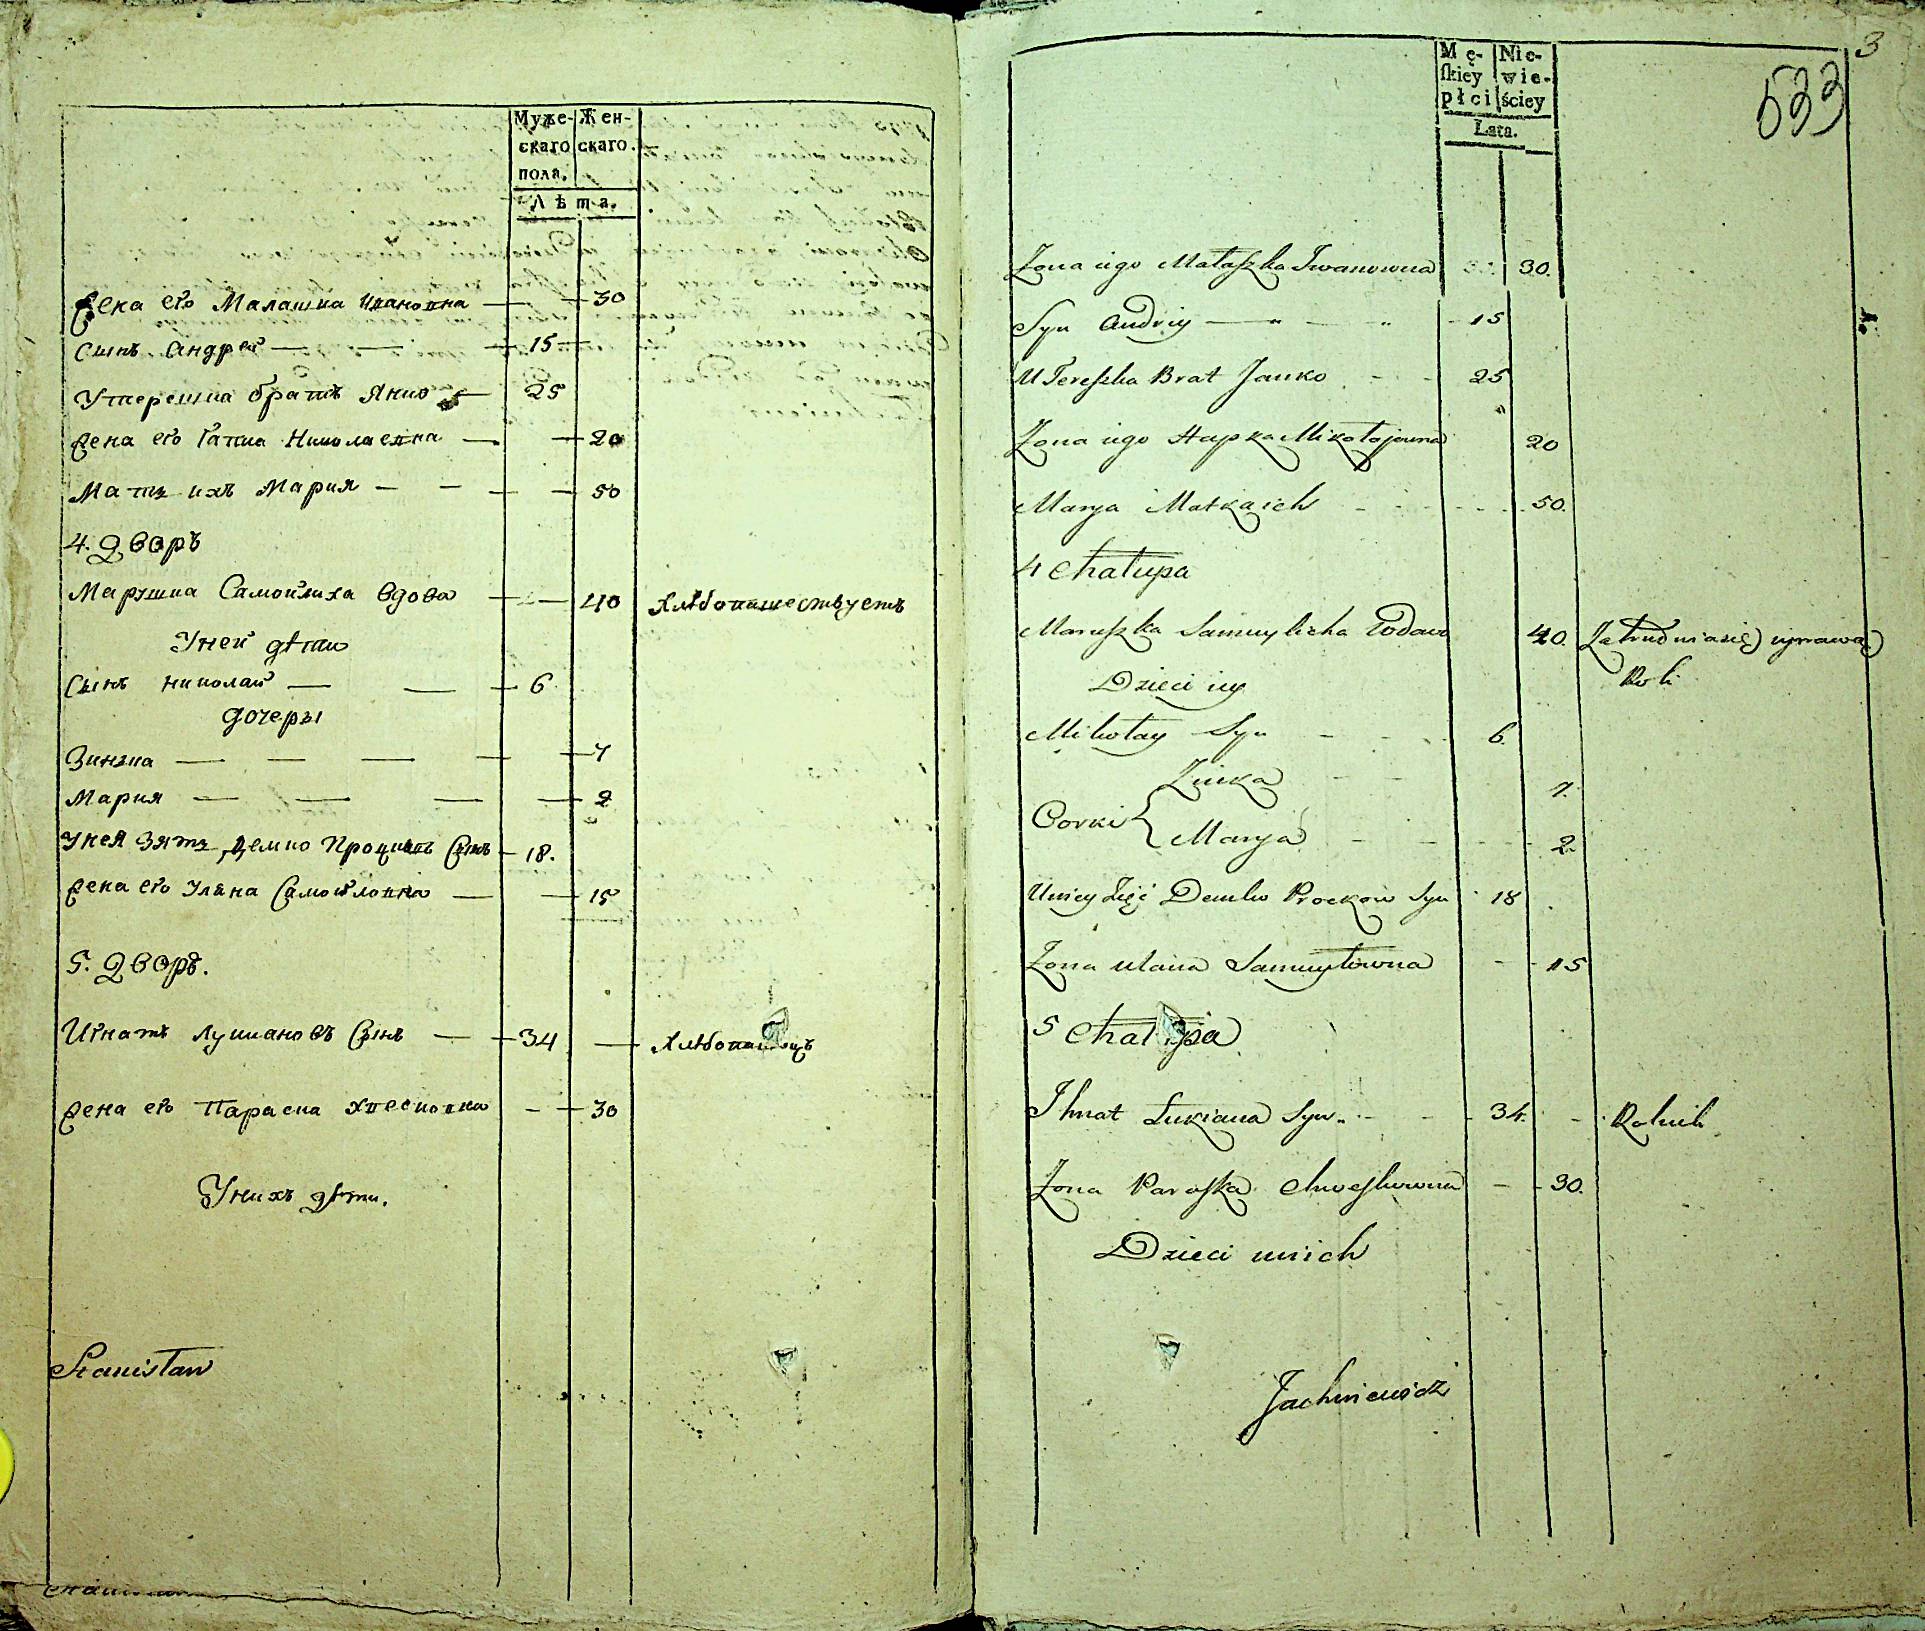 Муже- Жен-
скаго скаго.
пола.
Лѣта.
Жена его Малашка Ивановна 30
Сынъ Андрей 15
Утерешка братъ Янко 25
Жена его Гапка Николаевна 20
Мать ихъ Мария 50
4. Дворъ
Марушка Самойлиха вдова 40 хлѣбопашествуетъ
У ней дѣти
Сынъ николай 6
дочеры
Зинька 7
Мария 2
У нея зять Демко Процковъ сынъ 18.
Жена его Уляна Самойловна 15
5. Дворъ.
Игнатъ Лукиановъ сынъ 34 Хлѣбопашецъ
Жена его Параска Хвесковна 30
У нихъ дѣти.
Stanisław
3
533
Mę- Nie-
skiey wie-
płci ściey
Łata.
Zona iego Małaszka Iwanowna 30.
Syn Andriy 15
U Tereszka Brat Janko 25
Zona iego Hapka Mikołajowna 20
Marya Matka ich 50.
4 Chałupa
Maruszka Samuylicha Wdowa 40. Zatrudnia się uprawą
Roli
Dzieci iey
Mikołay Syn 6.
Zinka 7.
Corki
Marya 2.
U niey Zięć Demko Prockow Syn 18
Zona Ulana Samuyłowna 15
5 Chałupa
Ihnat Łukiana Syn 34. Rolnik
Zona Paraska Chweskowna 30.
Dzieci u nich
Jachniewicz